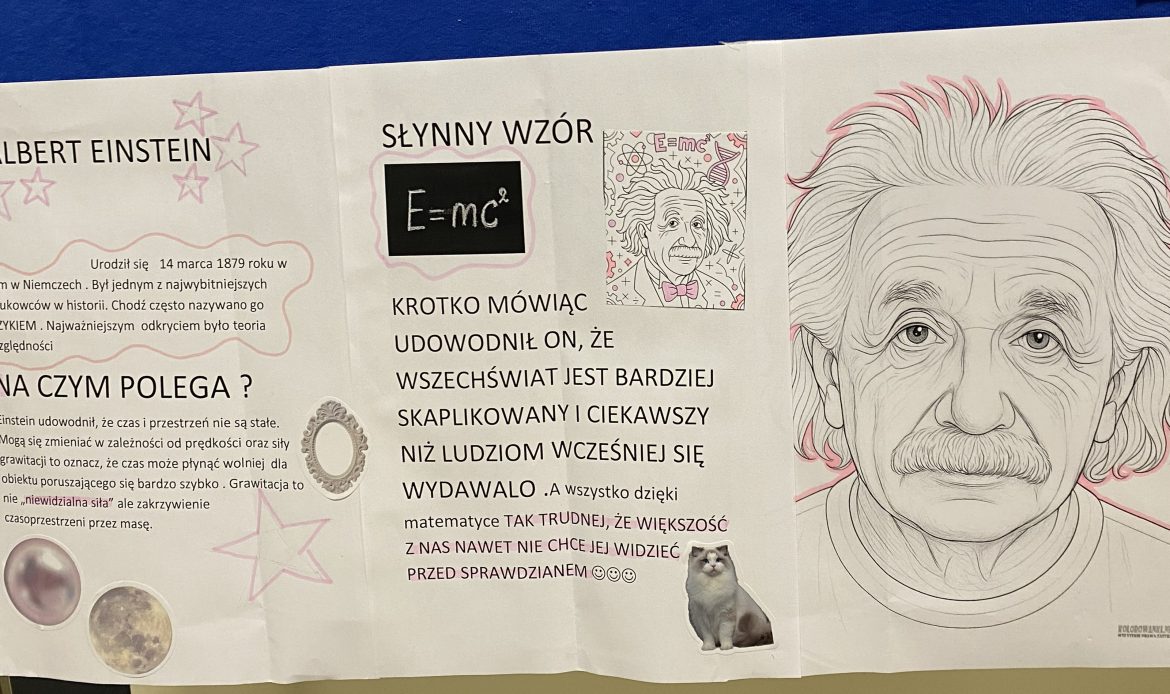 ALBERT EINSTEIN
Urodził się 14 marca 1879 roku w
m w Niemczech . Był jednym z najwybitniejszych
ukowców w historii. Chodź często nazywano go
ZYKIEM . Najważniejszym odkryciem było teoria
zględności
NA CZYM POLEGA ?
Einstein udowodnił, że czas i przestrzeń nie są stałe.
Mogą się zmieniać w zależności od prędkości oraz siły
grawitacji to oznacz, że czas może płynąć wolniej dla
obiektu poruszającego się bardzo szybko . Grawitacja to
nie „niewidzialna siła” ale zakrzywienie
czasoprzestrzeni przez masę.
SŁYNNY WZÓR
E=mc²
E=mc²
KROTKO MÓWIĄC
UDOWODNIŁ ON, ŻE
WSZECHŚWIAT JEST BARDZIEJ
SKAPLIKOWANY I CIEKAWSZY
NIŻ LUDZIOM WCZEŚNIEJ SIĘ
WYDAWALO .A wszystko dzięki
matematyce TAK TRUDNEJ, ŻE WIĘKSZOŚĆ
Z NAS NAWET NIE CHCE JEJ WIDZIEĆ
PRZED SPRAWDZIANEM ☺☺☺